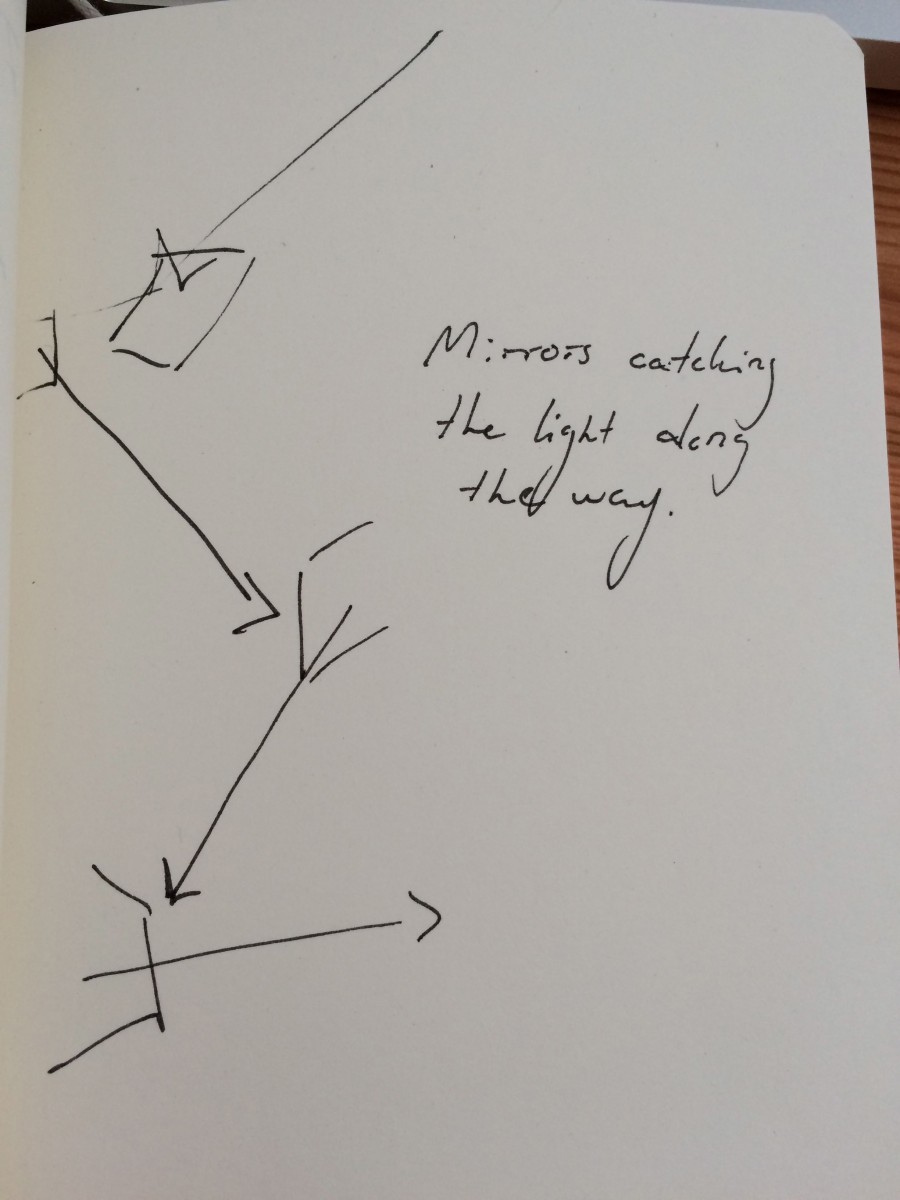 Mirrors catching
the light along
the way.